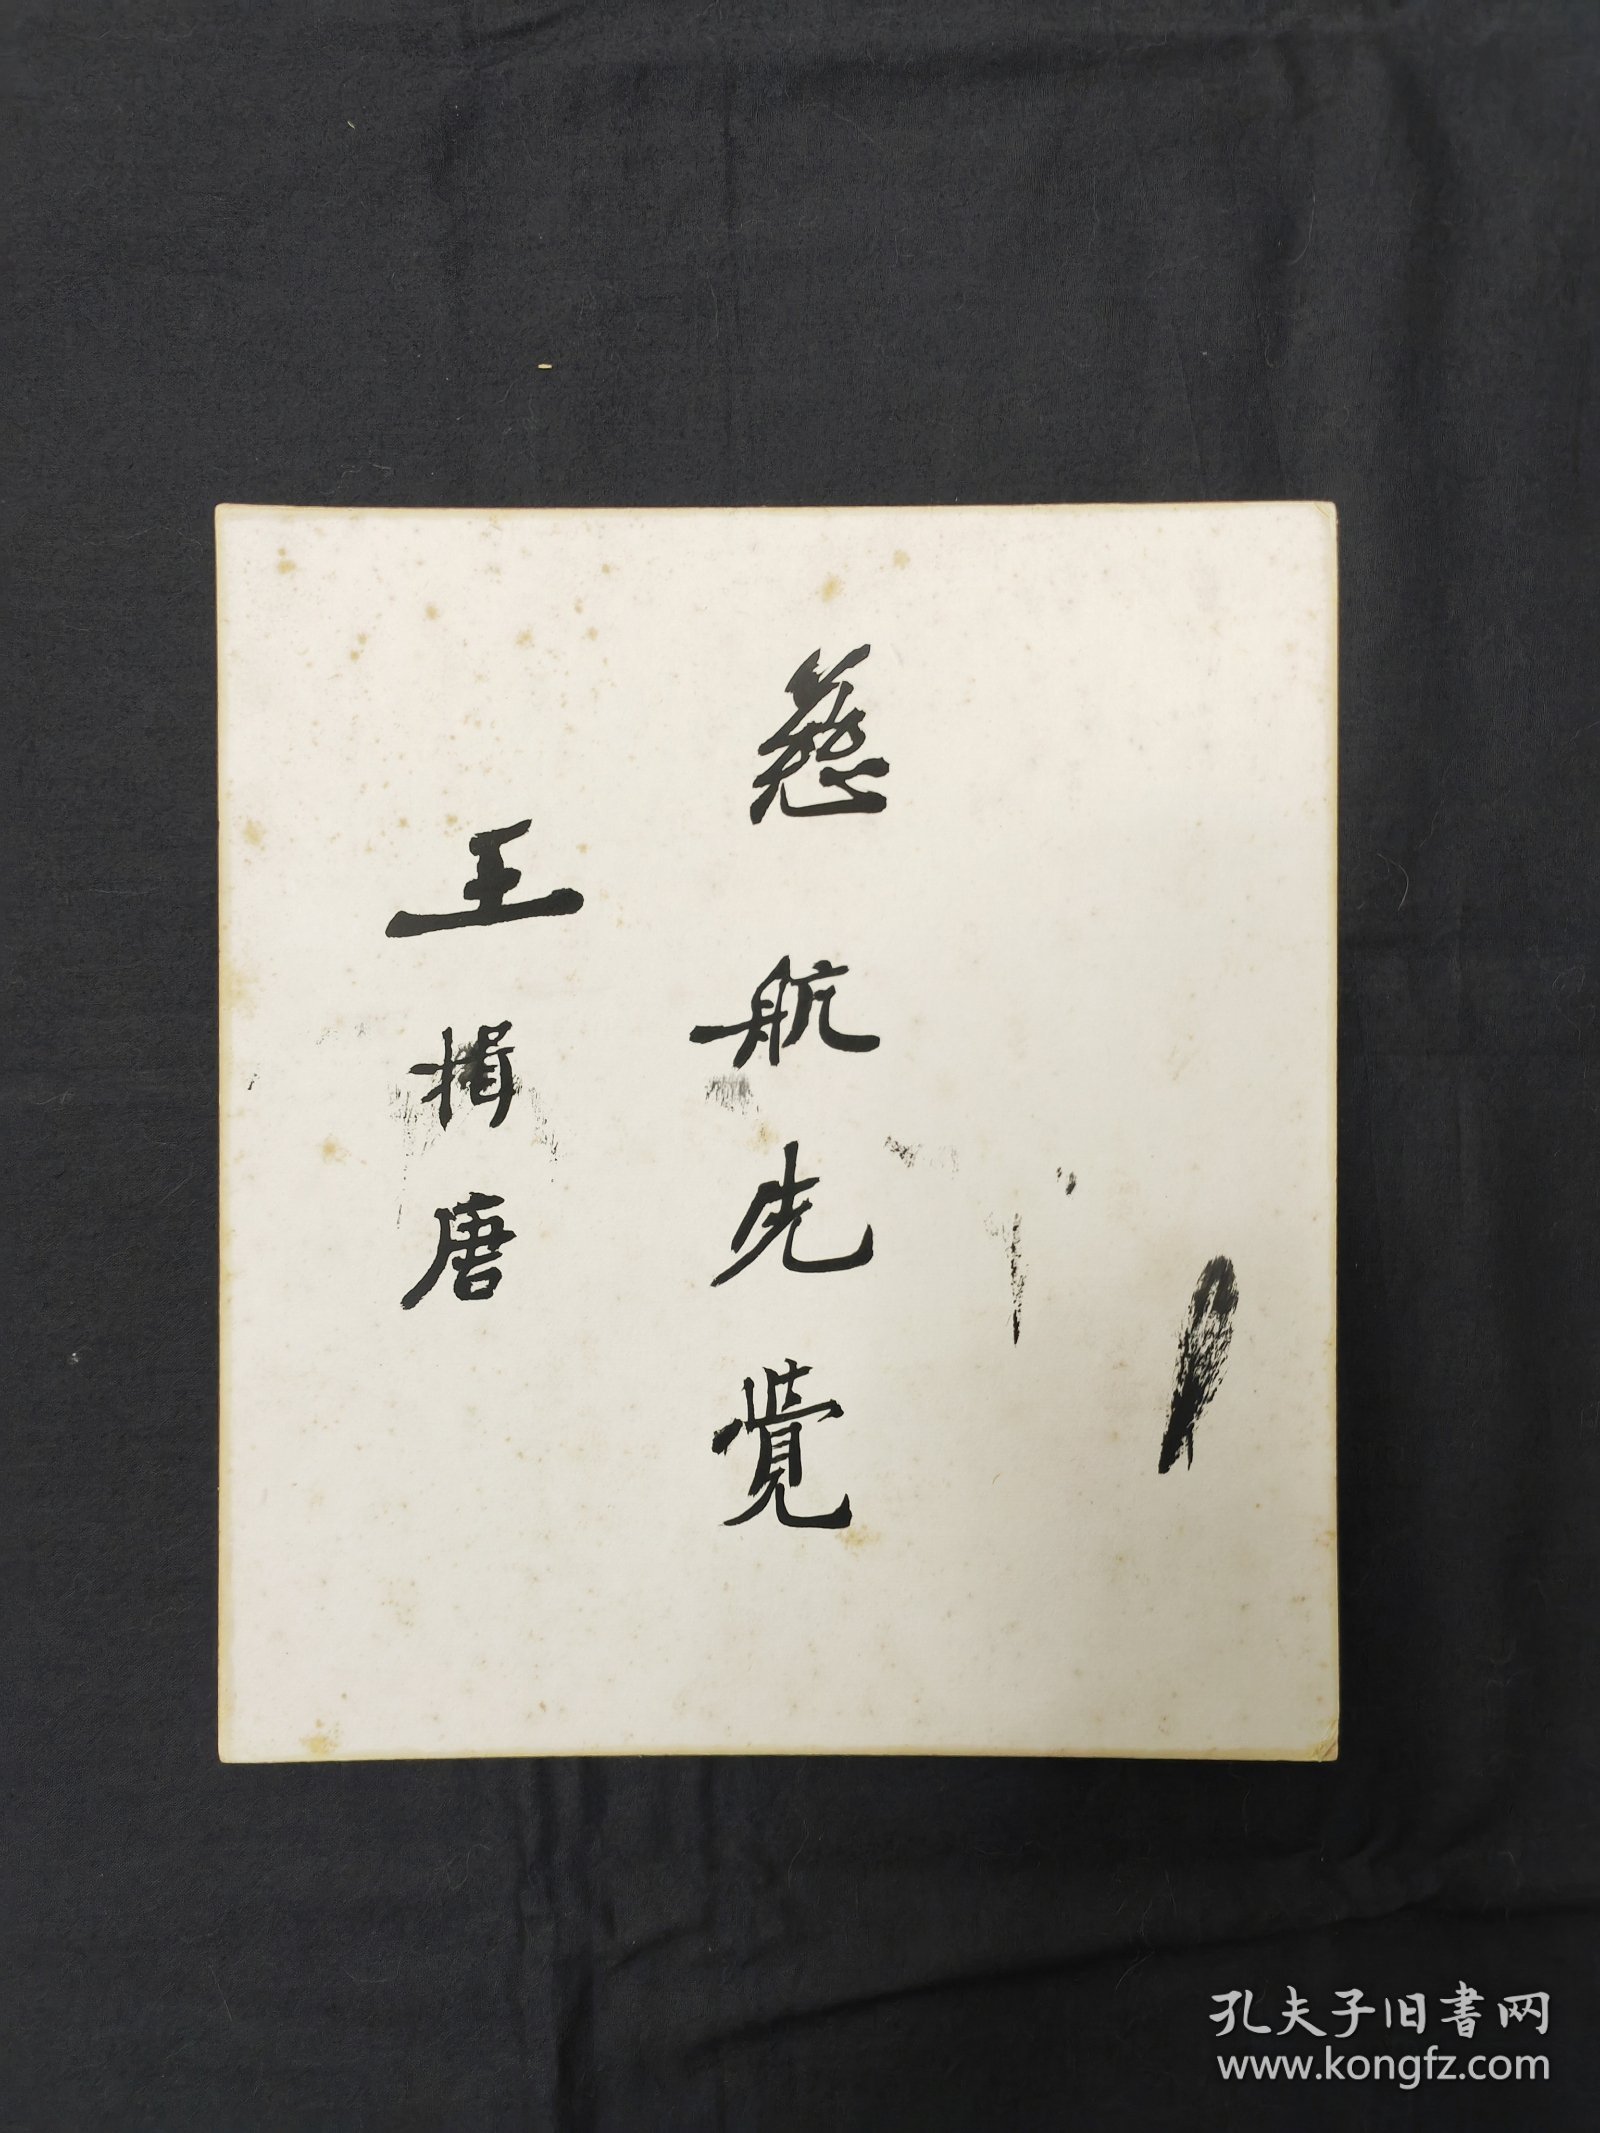 慈航先覺
王揖唐
孔夫子旧書网
www.kongfz.com